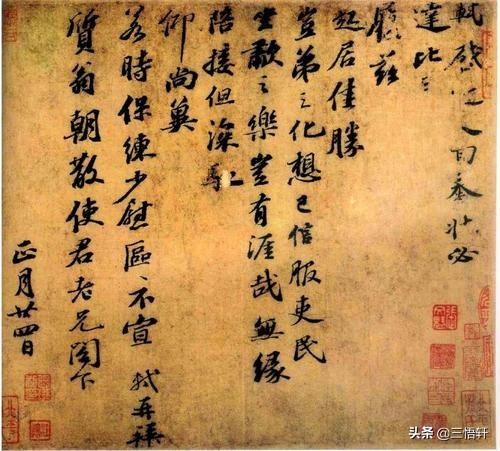 軾啓近人回奉狀必
達比日
履茲
起居佳勝
豈弟之化想已信服吏民
坐歗之樂豈有涯哉無緣
陪接但深馳
仰尚冀
若時保練少慰區〻不宣 軾再拜
質翁朝散使君老兄閣下
正月廿四日
头条 @三悟轩